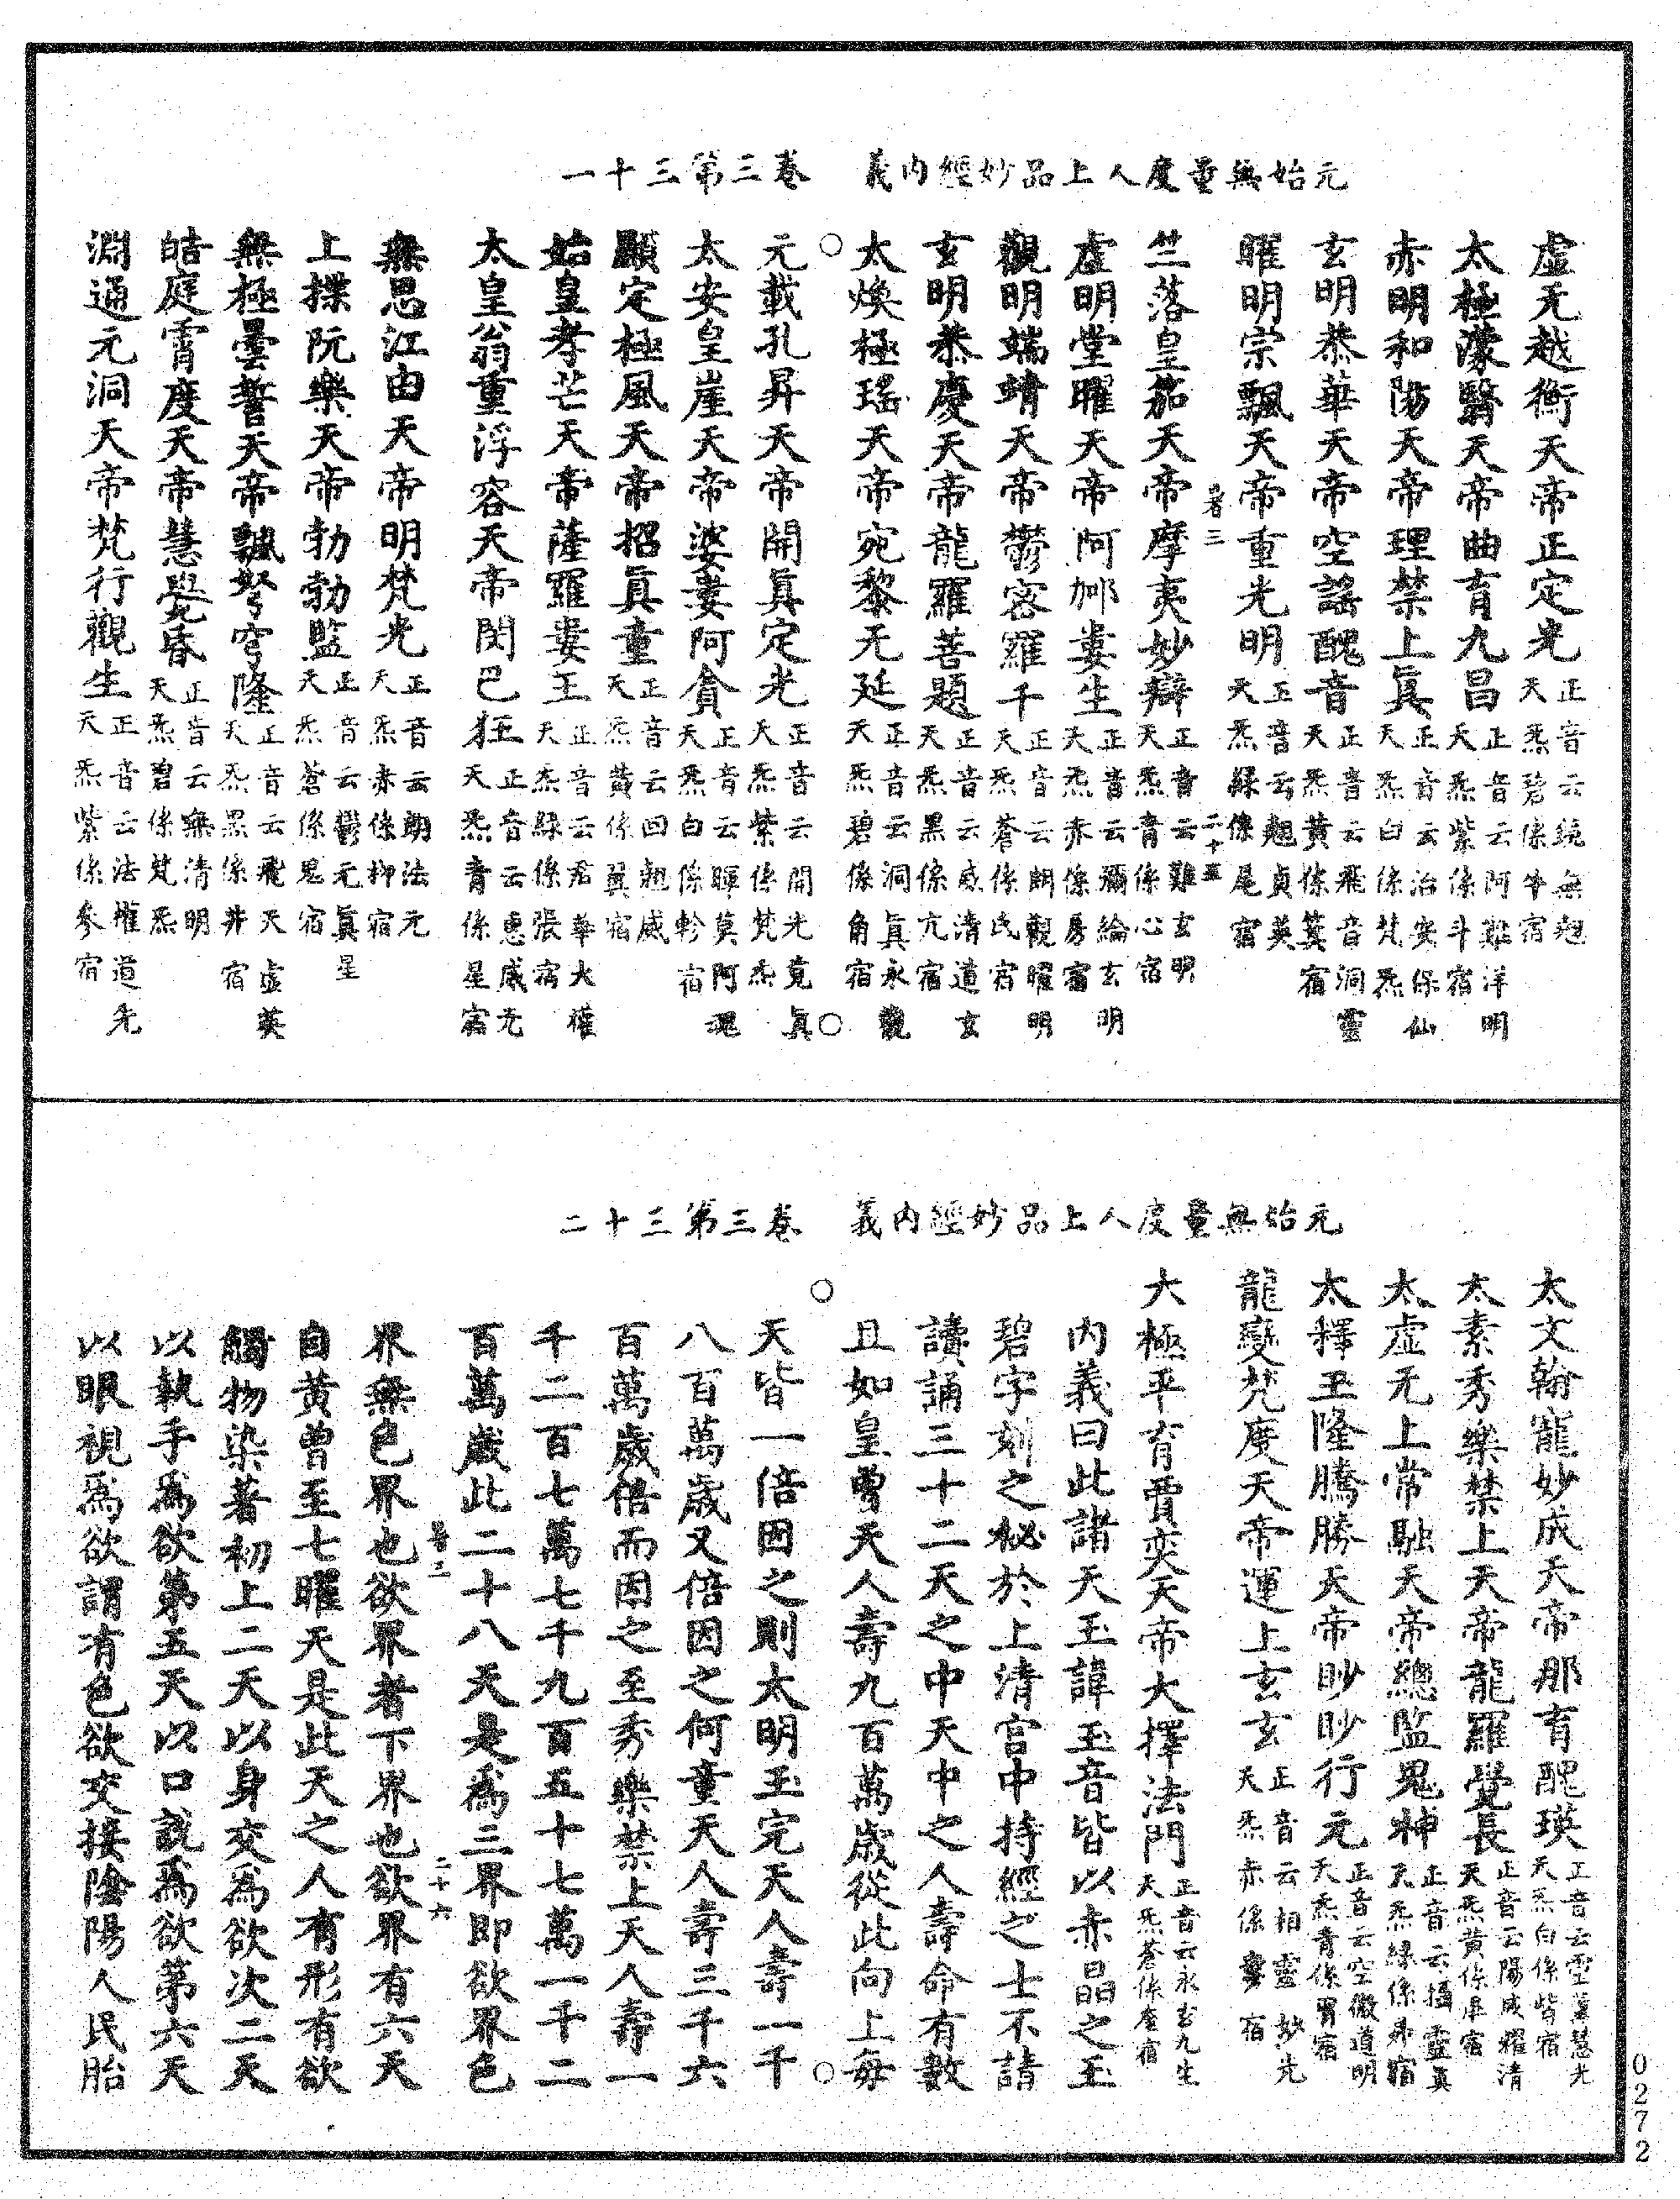 元始無量度人上品妙經內義　卷三第三十一
虛无越衡天帝正定光正音云鏡無翹天炁碧係牛宿
太極濛翳天帝曲育九昌正音云阿難洋明天炁紫係斗宿
赤明和陽天帝理禁上眞正音云治安保仙天炁白係梵炁
玄明恭華天帝空謠醜音正音云飛音洞靈天炁黃係箕宿
曜明宗飄天帝重光明正音云翹貞英天炁綠係尾宿
暑三　二十五
竺落皇笳天帝摩夷妙辯正音云難玄明天炁青係心宿
虛明堂曜天帝阿𨚗婁生正音云彌綸玄明天炁赤係房宿
觀明端靖天帝鬱密羅千正音云朗觀曜明天炁蒼係氐宿
玄明恭慶天帝龍羅菩題正音云感清道玄天炁黑係亢宿
太煥極瑤天帝宛黎无延正音云洞眞永觀天炁碧係角宿
元載孔昇天帝開眞定光正音云開光竟眞天炁紫係梵炁
太安皇崖天帝婆婁阿貪正音云暉莫阿魂天炁白係軫宿
顯定極風天帝招眞童正音云回翹感天炁黃係翼宿
始皇孝芒天帝薩羅婁王正音云君華大權天炁綠係張宿
太皇翁重浮容天帝閔巴狂正音云惠感光天炁青係星宿
無思江由天帝明梵光正音云朗法元天炁赤係柳宿
上揲阮樂天帝勃勃監正音云鬱元眞天炁蒼係鬼宿星
無極曇誓天帝飄弩穹隆正音云飛天虛英天炁黑係井宿
皓庭霄度天帝慧覺昏正音云樂清明天炁碧係梵炁
淵通元洞天帝梵行觀生正音云法權道先天炁紫係參宿
元始無量度人上品妙經內義　卷三第三十二
太文翰寵妙成天帝那育醜瑛正音云靈葉慧光天炁白係觜宿
太素秀樂禁上天帝龍羅覺長正音云陽威耀清天炁黃係畢宿
太虛无上常融天帝總監鬼神正音云攝靈眞天炁綠係昴宿
太釋玉隆騰勝天帝眇眇行元正音云空微道明天炁青係胃宿
龍變梵度天帝運上玄玄正音云相靈妙先天炁赤係婁宿
大極平育賈奕天帝大擇法門正音云永玄九生天炁蒼係奎宿
內義曰此諸天玉諱玉音皆以赤晶之玉
碧字刻之祕於上清宮中持經之士不請
讀誦三十二天之中天中之人壽命有數
且如皇曾天人壽九百萬歲從此向上每
天皆一倍因之則太明玉完天人壽一千
八百萬歲又倍因之何童天人壽三千六
百萬歲倍而因之至秀樂禁上天人壽一
千二百七萬七千九百五十七萬一千二
百萬歲此二十八天是爲三界即欲界色
暑三　二十六
界無色界也欲界者下界也欲界有六天
自黃曾至七曜天是此天之人有形有欲
觸物染著初上二天以身交爲欲次二天
以執手爲欲第五天以口說爲欲第六天
以眼視爲欲謂有色欲交接陰陽人民胎
0272